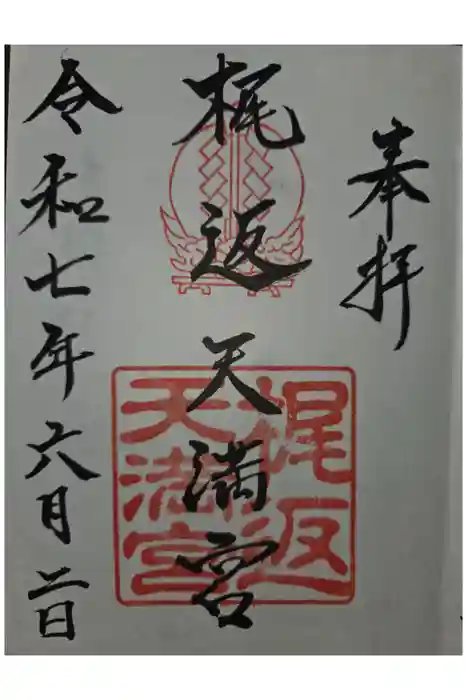 奉拝
梶返天満宮
梶返
天満宮
令和七年六月二日